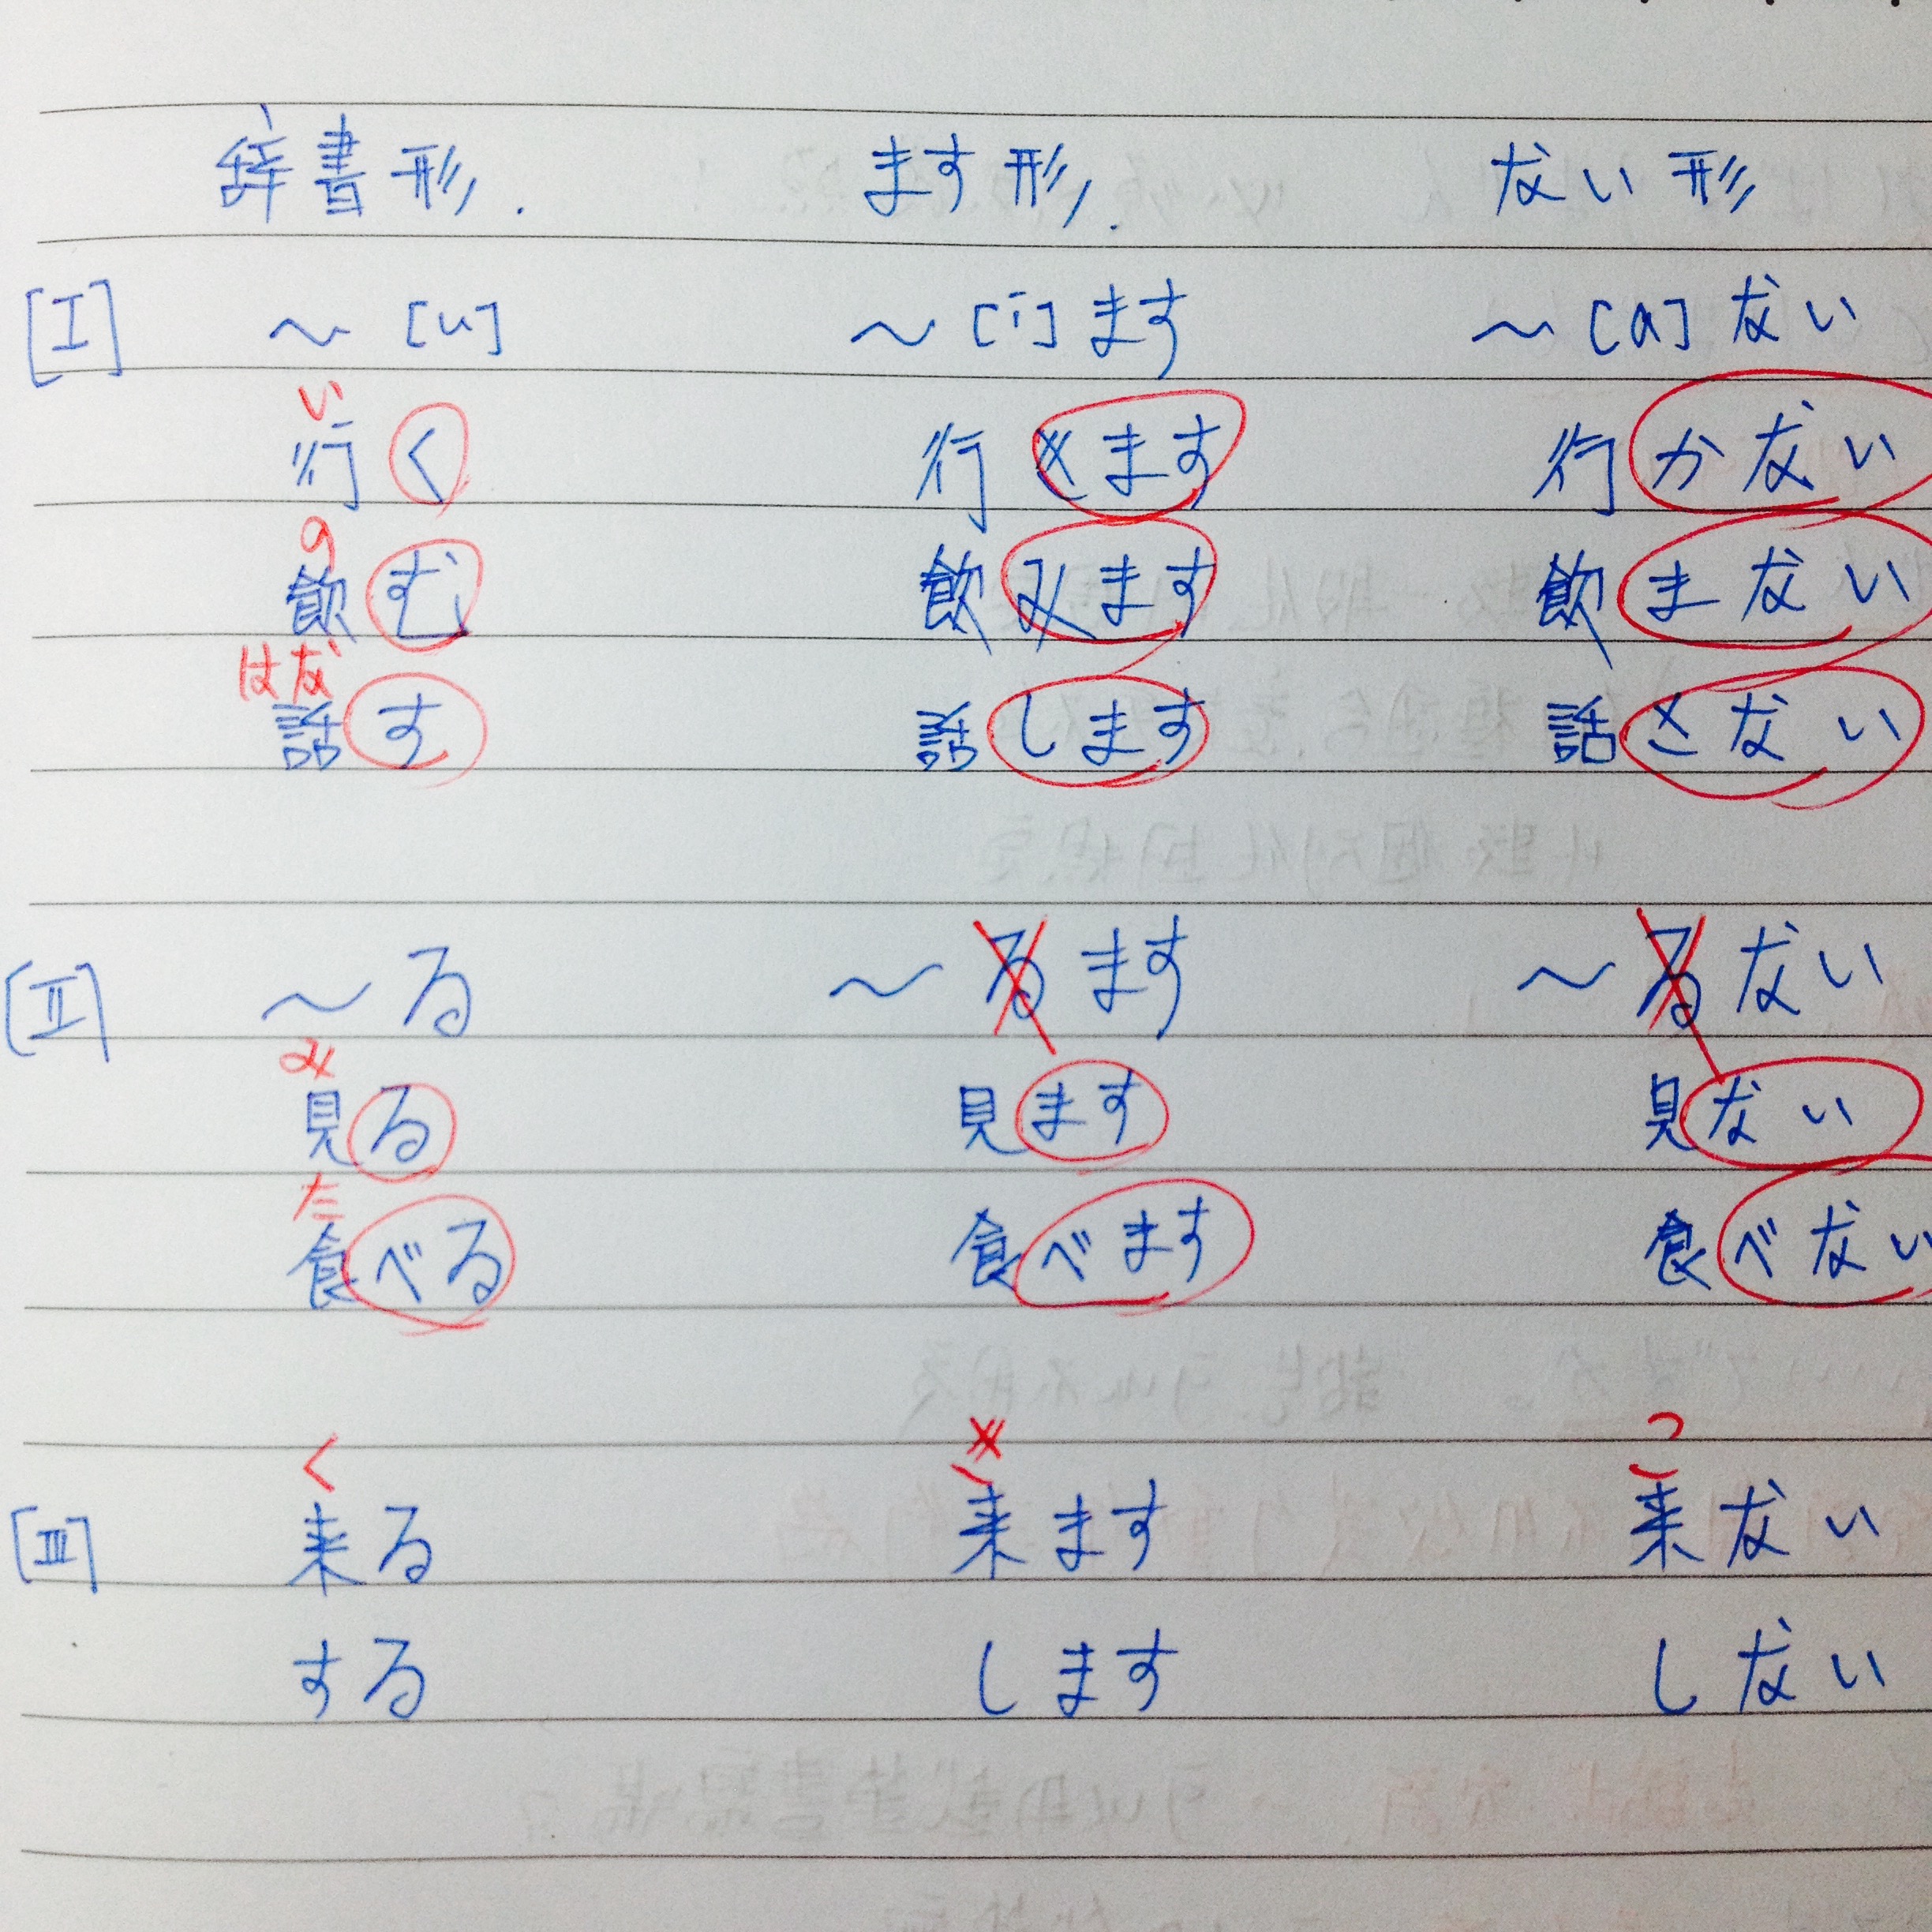 辞書形. ます形. ない形
[I] ~ [u] ~ [i] ます ~ [a] ない
い
行く 行きます 行かない
の
飲む 飲みます 飲まない
はな
話す 話します 話さない
[II] ~る ~るます ~るない
み
見る 見ます 見ない
た
食べる 食べます 食べない
く き こ
[III] 来る 来ます 来ない
する します しない